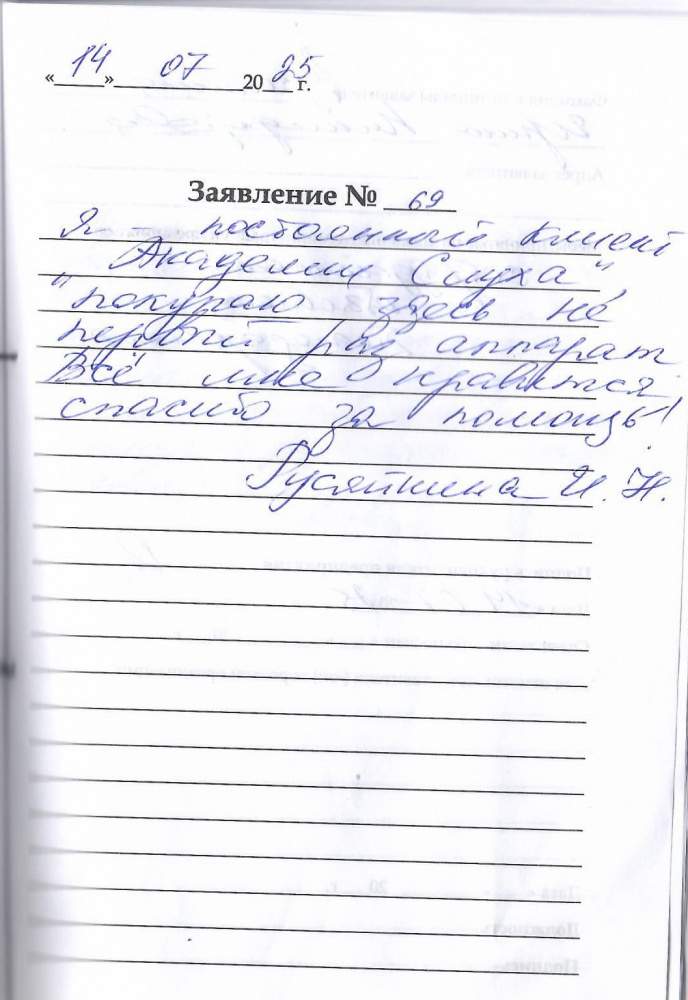 «14» 07 2025 г.
Заявление № 69
Я - постоянный клиент
"Академии Слуха",
покупаю здесь не
первый раз аппарат
Всё мне нравится,
спасибо за помощь!
Русяйкина И. Н.